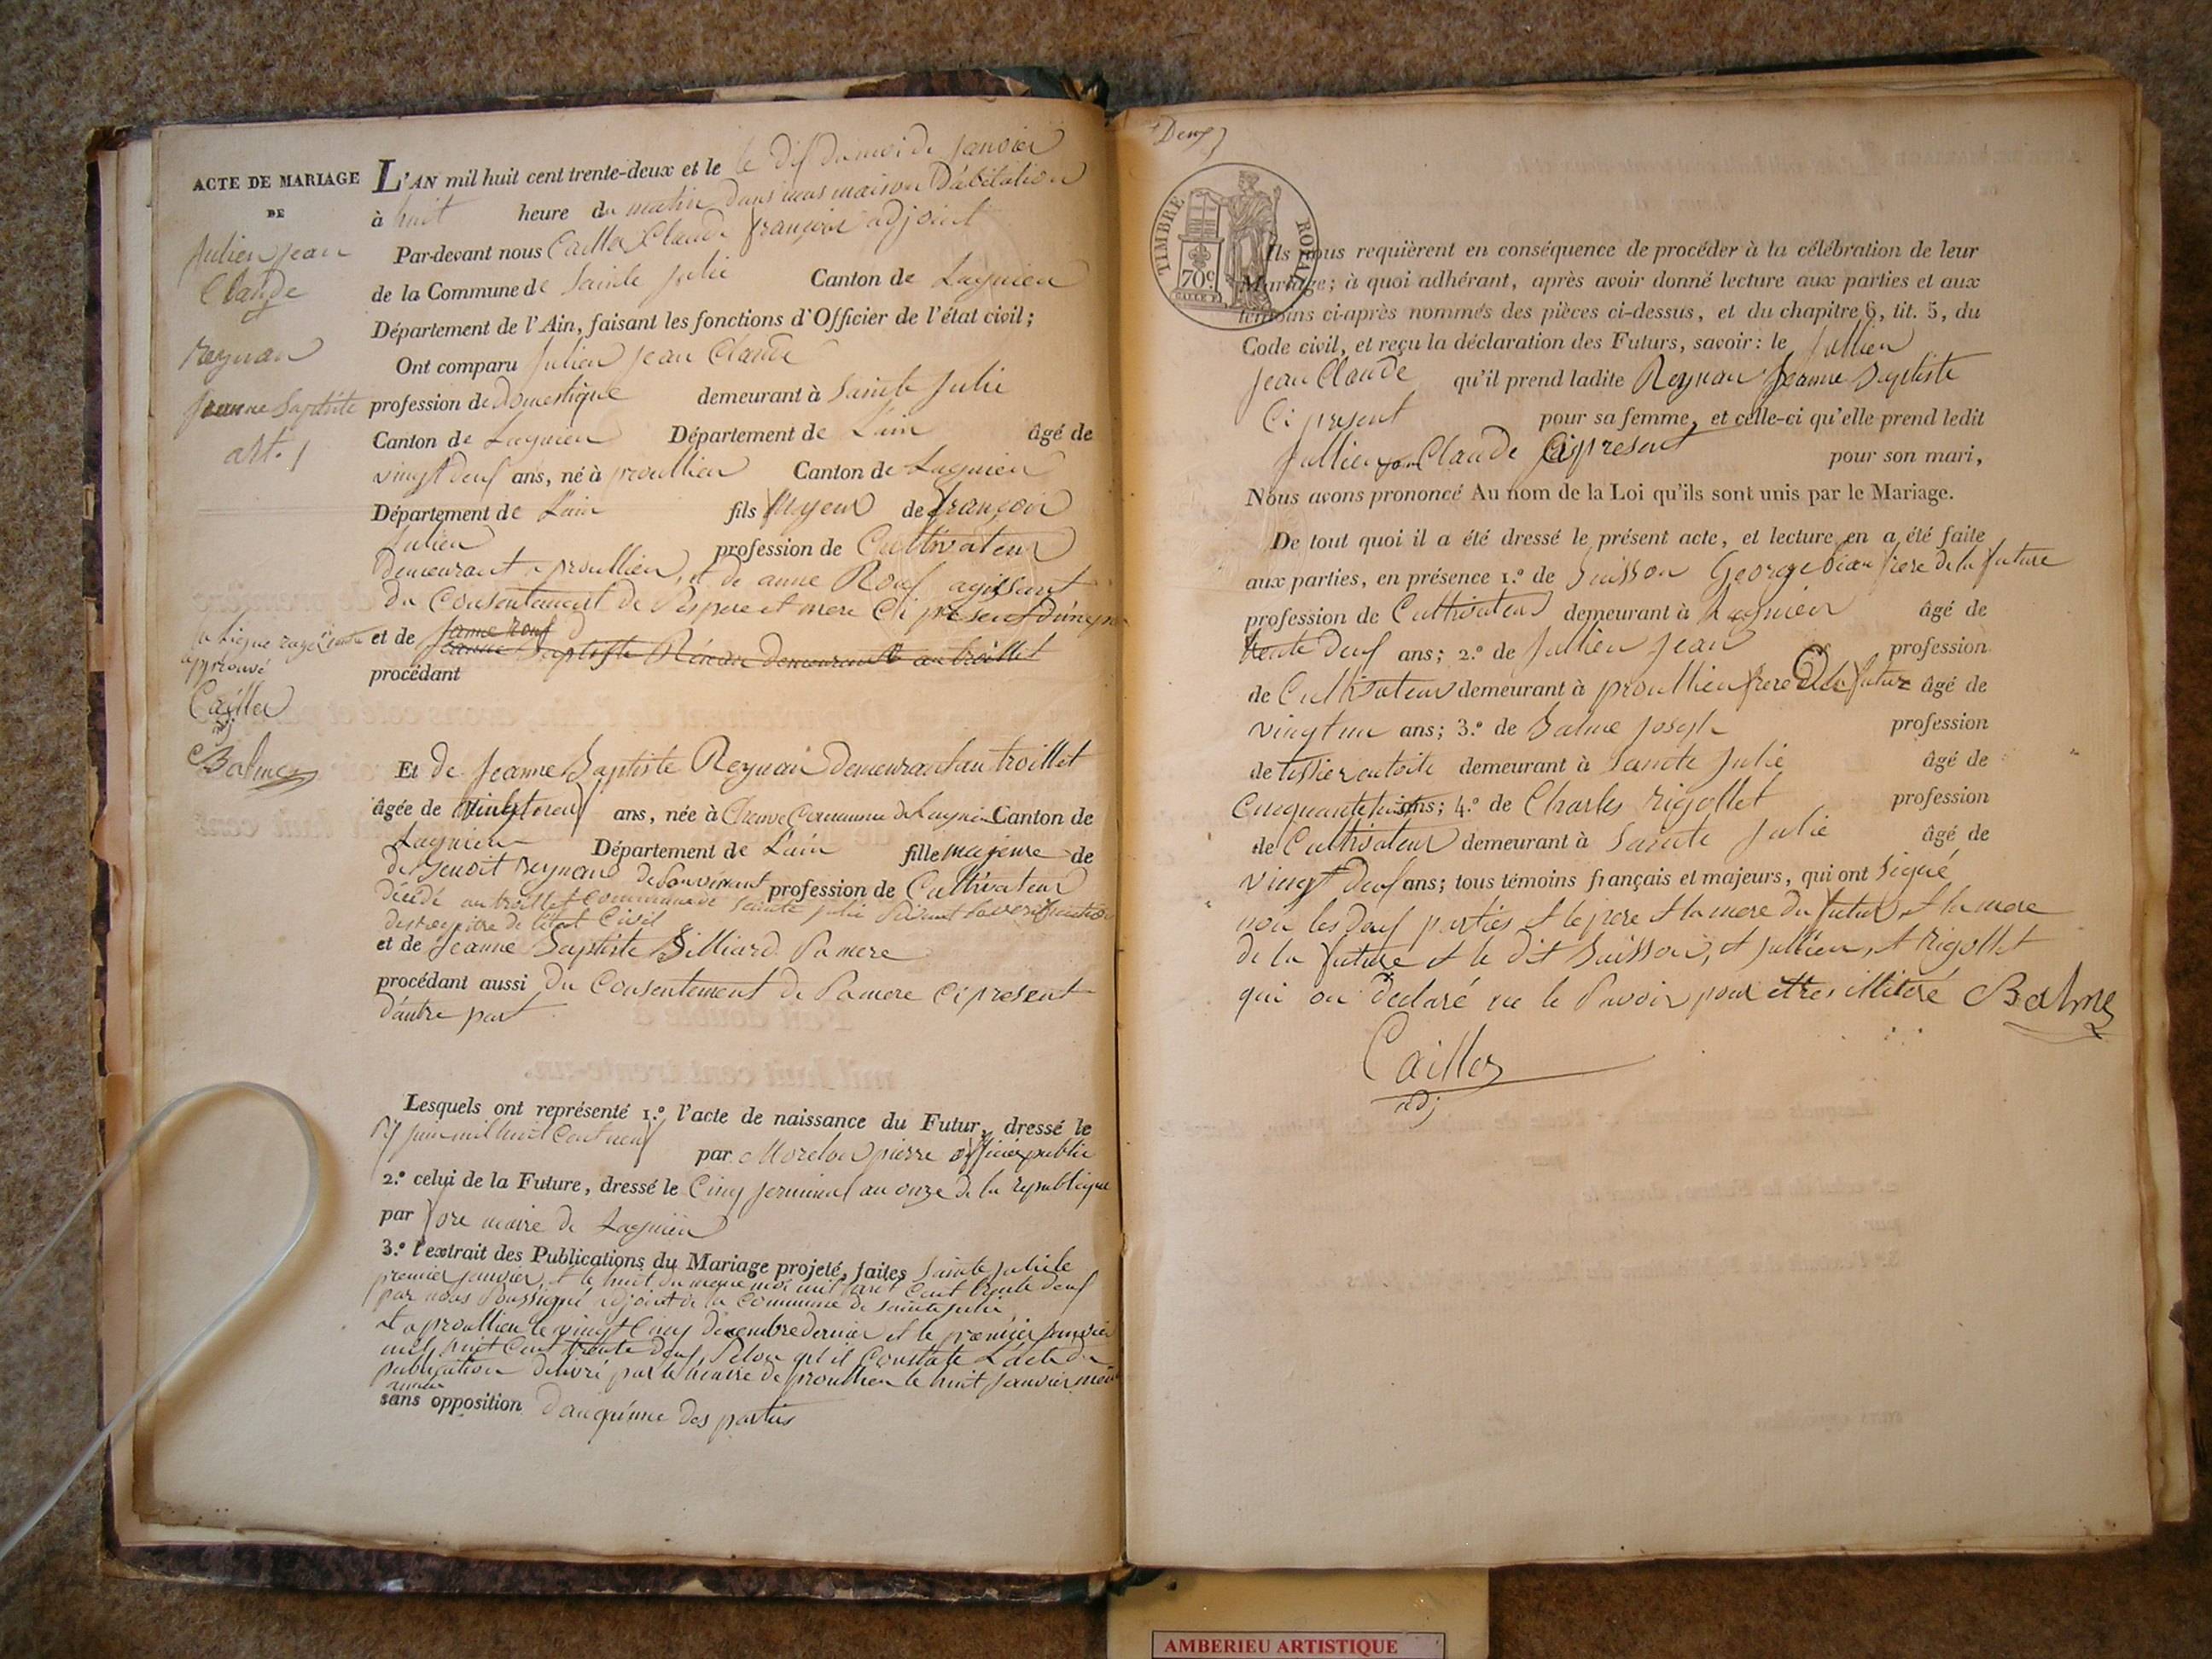 ACTE DE MARIAGE
DE
Julien Jean
Claude
Reynan
Jeanne Baptiste
art. 1
L'AN mil huit cent trente-deux et le le dix du moi de janvier
à huit heure du matin dans mas maison d'abitation
Par-devant nous Caillet Claude françois adjoint
de la Commune de Sainte Julie Canton de Lagnieu
Département de l'Ain, faisant les fonctions d'Officier de l'état civil;
Ont comparu Julien Jean Claude
profession de Domestique demeurant à Sainte Julie
Canton de Lagnieu Département de L'ain âgé de
vingt deux ans, né à proullieu Canton de Lagnieu
Département de L'ain fils Majeur de françois
Julien profession de Cultivateur
Demeurant a proullieu, et de anne Roux agissant
du Consentement de Ses pere et mere Ci present d'une par
et de Janne roux
Jeanne Baptiste Demeurant au troillet
procédant
la ligne rayé
approuvé
Cailler
adj
Balme
Et de Jeanne Baptiste Reynan Demeurant au troillet
âgée de vingt neuf ans, née à Commune de Lagnieu Canton de
Lagnieu Département de L'ain fille majeure de
de Benoit Reynand de Son vivant profession de Cultivateur
décédé au troillet Commune de Sainte julie Suivant la verification
des registre de l'état Civil
et de Jeanne Baptiste Billiard Sa mere
procédant aussi Du Consentement de Sa mere Ci present
d'autre part
Lesquels ont représenté 1.º l'acte de naissance du Futur, dressé le
Six juin mil huit Cent neuf par Morelon pierre officier public
2.º celui de la Future, dressé le Cinq jerminal an onze de la republique
par fore maire de Lagnieu
3.º l'extrait des Publications du Mariage projeté, faites Sainte julie le
premier janvier, et le huit du meme moi mil huit Cent trente deux
par nous Soussigné adjoint de la Commune de Sainte julie
et a proullieu le vingt Cinq decembre dernier et le premier janvier
mil huit Cent trente deux Selon qu'il Constate L'acte de
publication delivré par le maire de proullieu le huit janvier meme
année
sans opposition d'auqu'unne des parties
Deux
TIMBRE ROYAL
70c
Ils nous requièrent en conséquence de procéder à la célébration de leur
Mariage; à quoi adhérant, après avoir donné lecture aux parties et aux
témoins ci-après nommés des pièces ci-dessus, et du chapitre 6, tit. 5, du
Code civil, et reçu la déclaration des Futurs, savoir: le Jullien
Jean Claude qu'il prend ladite Reynan Jeanne Baptiste
Ci present pour sa femme, et celle-ci qu'elle prend ledit
Jullien jean Claude Ci present pour son mari,
Nous avons prononcé Au nom de la Loi qu'ils sont unis par le Mariage.
De tout quoi il a été dressé le présent acte, et lecture en a été faite
aux parties, en présence 1.º de Buisson George beau frere de la future
profession de Cultivateur demeurant à Lagnieu âgé de
trente deux ans; 2.º de Jullien Jean profession
de Cultivateur demeurant à proullieu frere du futur âgé de
vingt un ans; 3.º de Balme joseph profession
de tissier en toile demeurant à Sainte Julie âgé de
Cinquante huit ans; 4.º de Charles rigollet profession
de Cultivateur demeurant à Sainte Julie âgé de
vingt deux ans; tous témoins français et majeurs, qui ont Signé
non les deux parties et le pere et la mere du futur, et la mere
de la future et le dit Buisson, et Jullien, et Rigollet
qui on Declaré ne le Savoir pour ettres illiteré Balme
Cailler
adj
AMBERIEU ARTISTIQUE